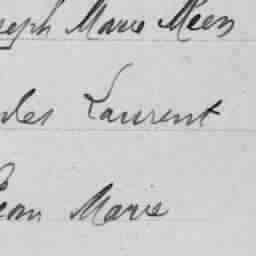 seph Marie Meen
rles Laurent
Jean Marie